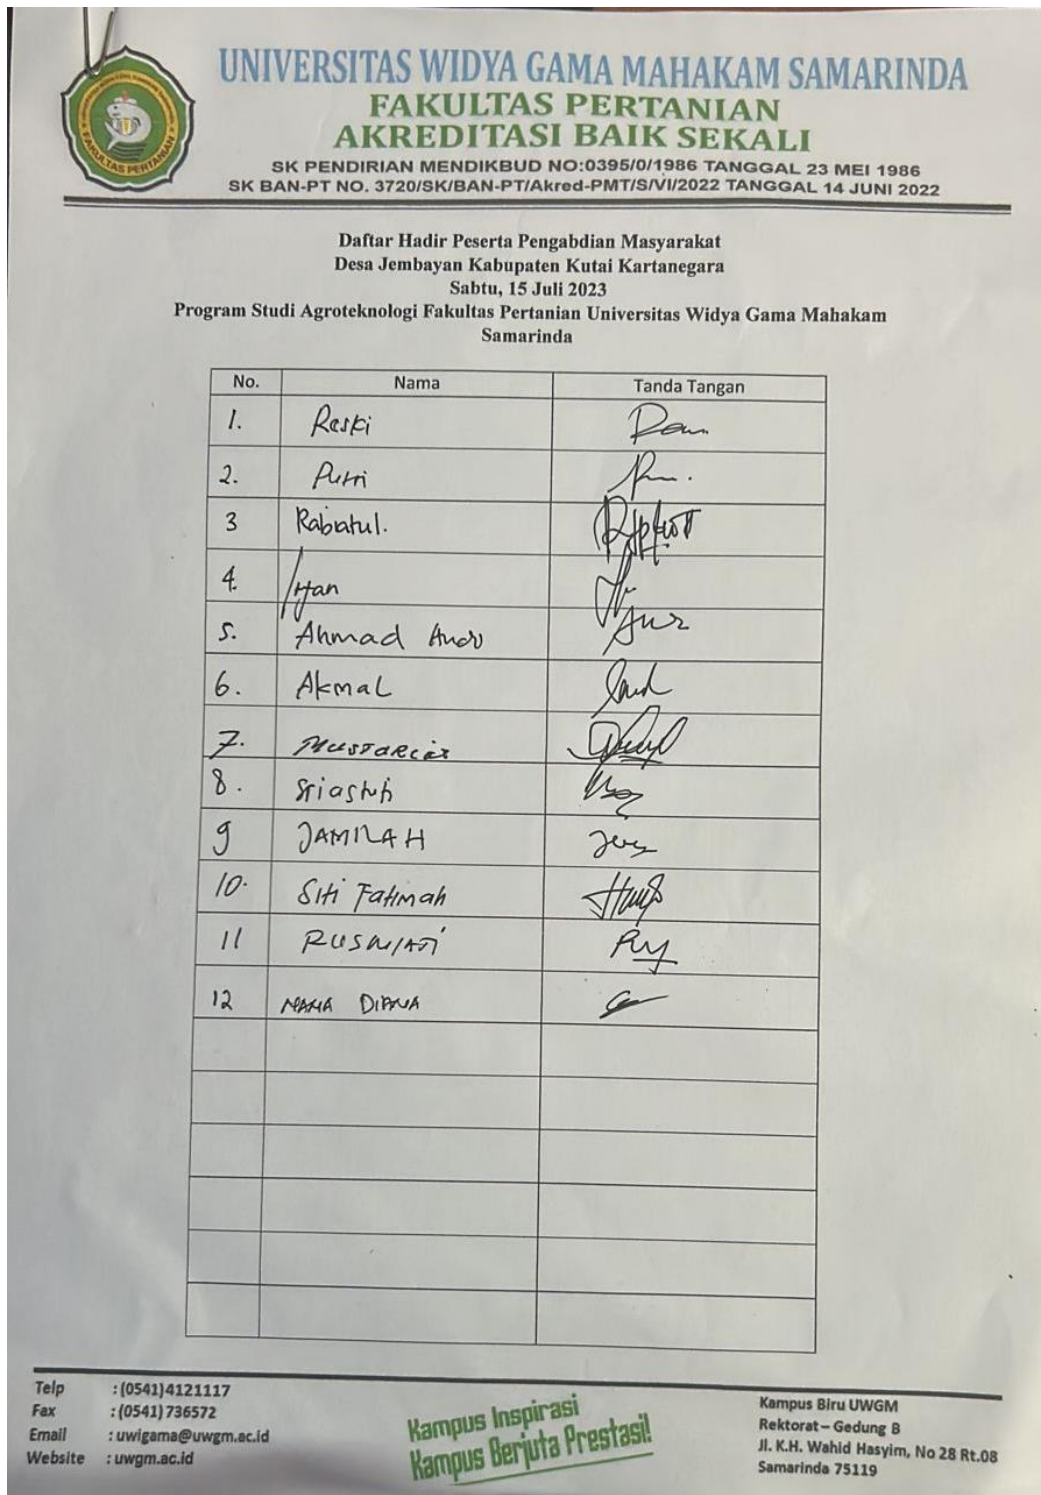 UNIVERSITAS WIDYA GAMA MAHAKAM SAMARINDA
FAKULTAS PERTANIAN
AKREDITASI BAIK SEKALI
SK PENDIRIAN MENDIKBUD NO:0395/0/1986 TANGGAL 23 MEI 1986
SK BAN-PT NO. 3720/SK/BAN-PT/Akred-PMT/S/VI/2022 TANGGAL 14 JUNI 2022
FAKULTAS PERTANIAN
Daftar Hadir Peserta Pengabdian Masyarakat
Desa Jembayan Kabupaten Kutai Kartanegara
Sabtu, 15 Juli 2023
Program Studi Agroteknologi Fakultas Pertanian Universitas Widya Gama Mahakam
Samarinda
No. Nama Tanda Tangan
1. Reski
2. Putri
3 Rabiatul.
4.
5. Ahmad
6. Akmal
7.
8. Sriastuti
9 JAMILAH
10. Siti Fatimah
11 RUSMIATI
12 MAMA DIANA
Telp : (0541)4121117
Fax : (0541) 736572
Email : uwigama@uwgm.ac.id
Website : uwgm.ac.id
Kampus Inspirasi
Kampus Berjuta Prestasi!
Kampus Biru UWGM
Rektorat – Gedung B
Jl. K.H. Wahid Hasyim, No 28 Rt.08
Samarinda 75119